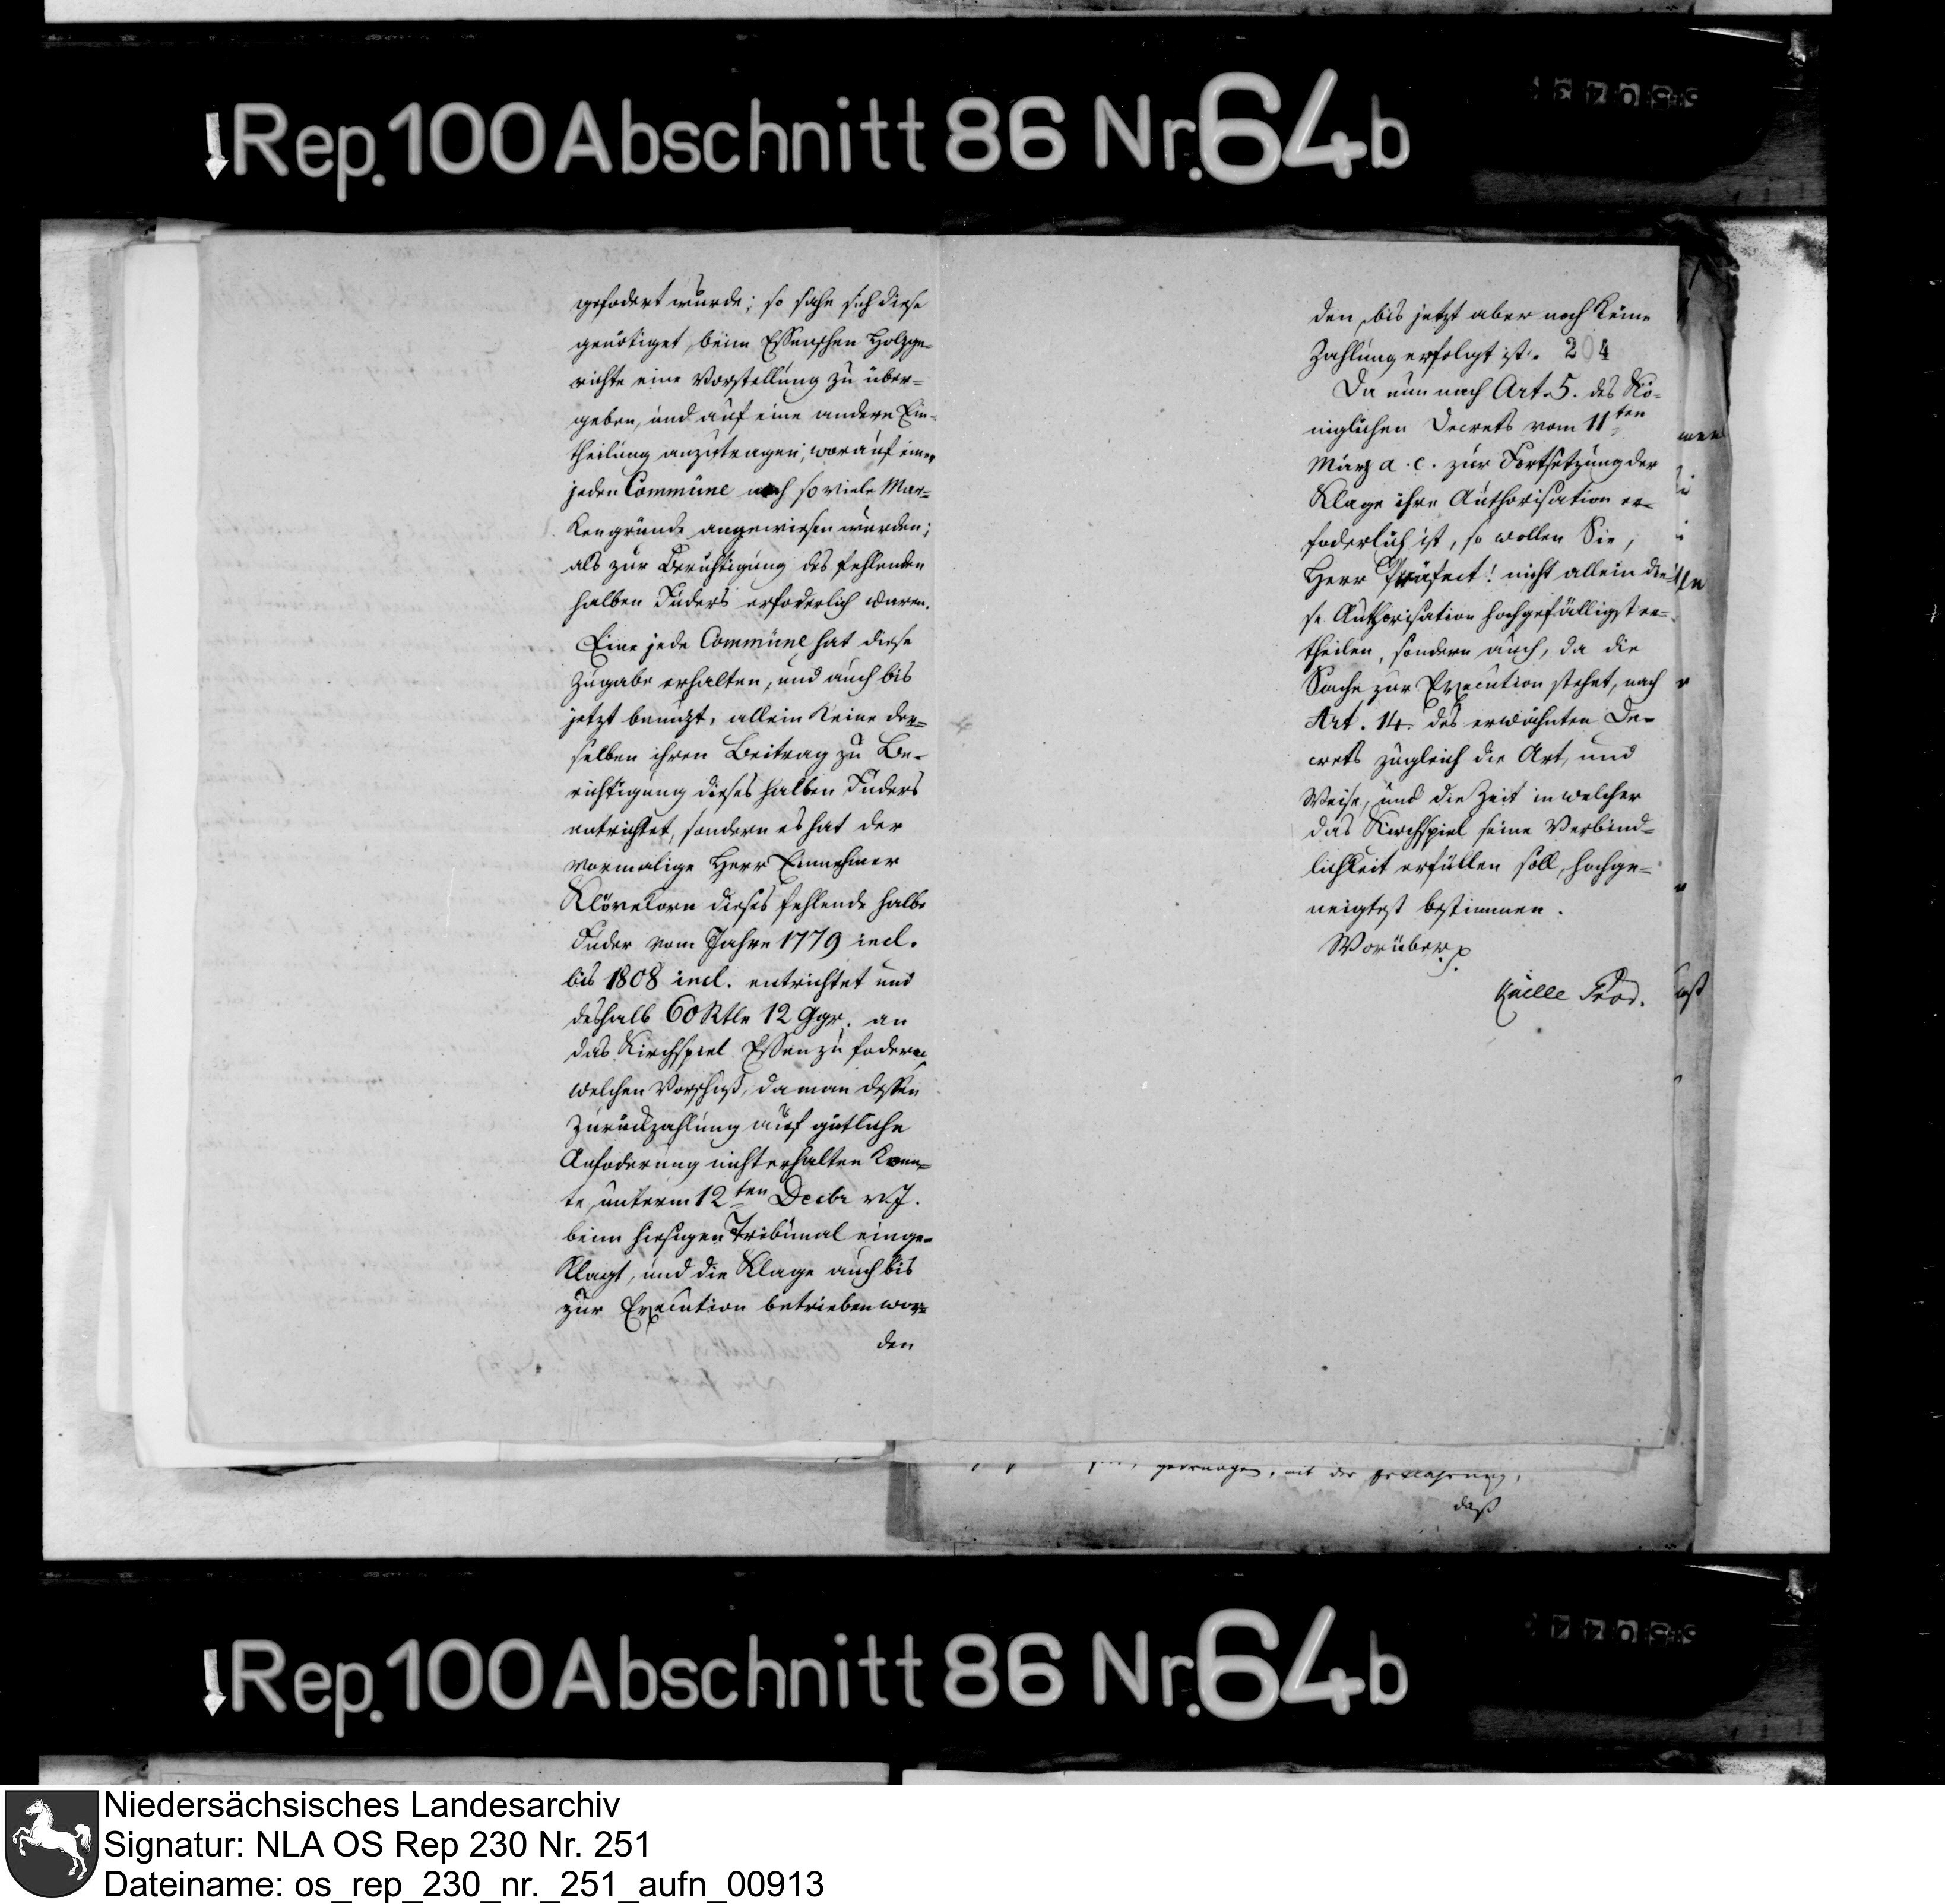 Rep. 100 Abschnitt 86 Nr. 64b
gefodert wurde; so sahe sich diese
genötiget, beim Essenschen Holzge-
richte eine Vorstellung zu über-
geben, und auf eine andere Ein-
theilung anzutragen, worauf einer
jeden Commüne noch so viele Mar-
kengründe angewiesen wurden;
als zur Berichtigung des fehlenden
halben Fuders erfoderlich waren.
Eine jede Commüne hat diese
Zugabe erhalten, und auch bis
jetzt benuzt, allein keine der-
selben ihren Beitrag zu Be-
richtigung dieses halben Fuders
entrichtet, sondern es hat der
vormalige Herr Einnehmer
Klövekorn dieses fehlende halbe
Fuder vom Jahre 1779 incl.
bis 1808 incl. entrichtet und
deshalb 60 Rtlr 12 Ggr. an
das Kirchspiel Essen zu fodern,
welchen Vorschuß, da man dessen
Zurückzahlung auf gütliche
Anfoderung nicht erhalten konn-
te, unterm 12ten Decbr v. J.
beim hiesigen Tribunal einge-
klagt, und die Klage auch bis
zur Execution betrieben wor-
den
den, bis jetzt aber noch keine
Zahlung erfolgt ist. 204
Da nun nach Art. 5. des Kö-
niglichen Decrets vom 11ten
März a. c. zur Fortsetzung der
Klage ihre Authorisation er-
foderlich ist, so wollen Sie,
Herr Präfect! nicht allein die-
se Authorisation hochgefälligst er-
theilen, sondern auch, da die
Sache zur Execution stehet, nach
Art. 14. des erwähnten De-
crets zugleich die Art und
Weise, und die Zeit in welcher
das Kirchspiel seine Verbind-
lichkeit erfüllen soll, hochge-
neigtest bestimmen.
Worüber p.
mit der Erklährung,
daß
Rep. 100 Abschnitt 86 Nr. 64b
Niedersächsisches Landesarchiv
Signatur: NLA OS Rep 230 Nr. 251
Dateiname: os_rep_230_nr._251_aufn_00913